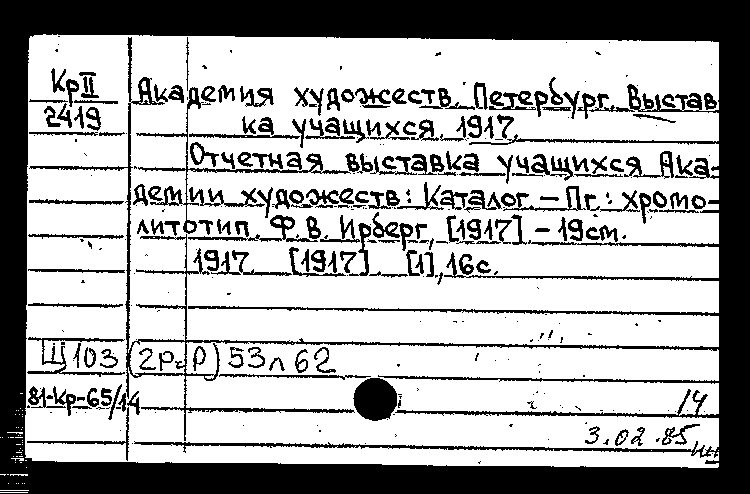 КрII
2419
Академия художеств. Петербург. Выстав
ка учащихся. 1917.
Отчетная выставка учащихся Ака-
демии художеств: Каталог. – Пг.: хромо-
литотип. Ф.В. Ирберг, [1917] – 19см.
1917 [1917] [1], 16с.
Щ103(2Р=Р)53л62
81-Кр-65/14
14
3.02.85